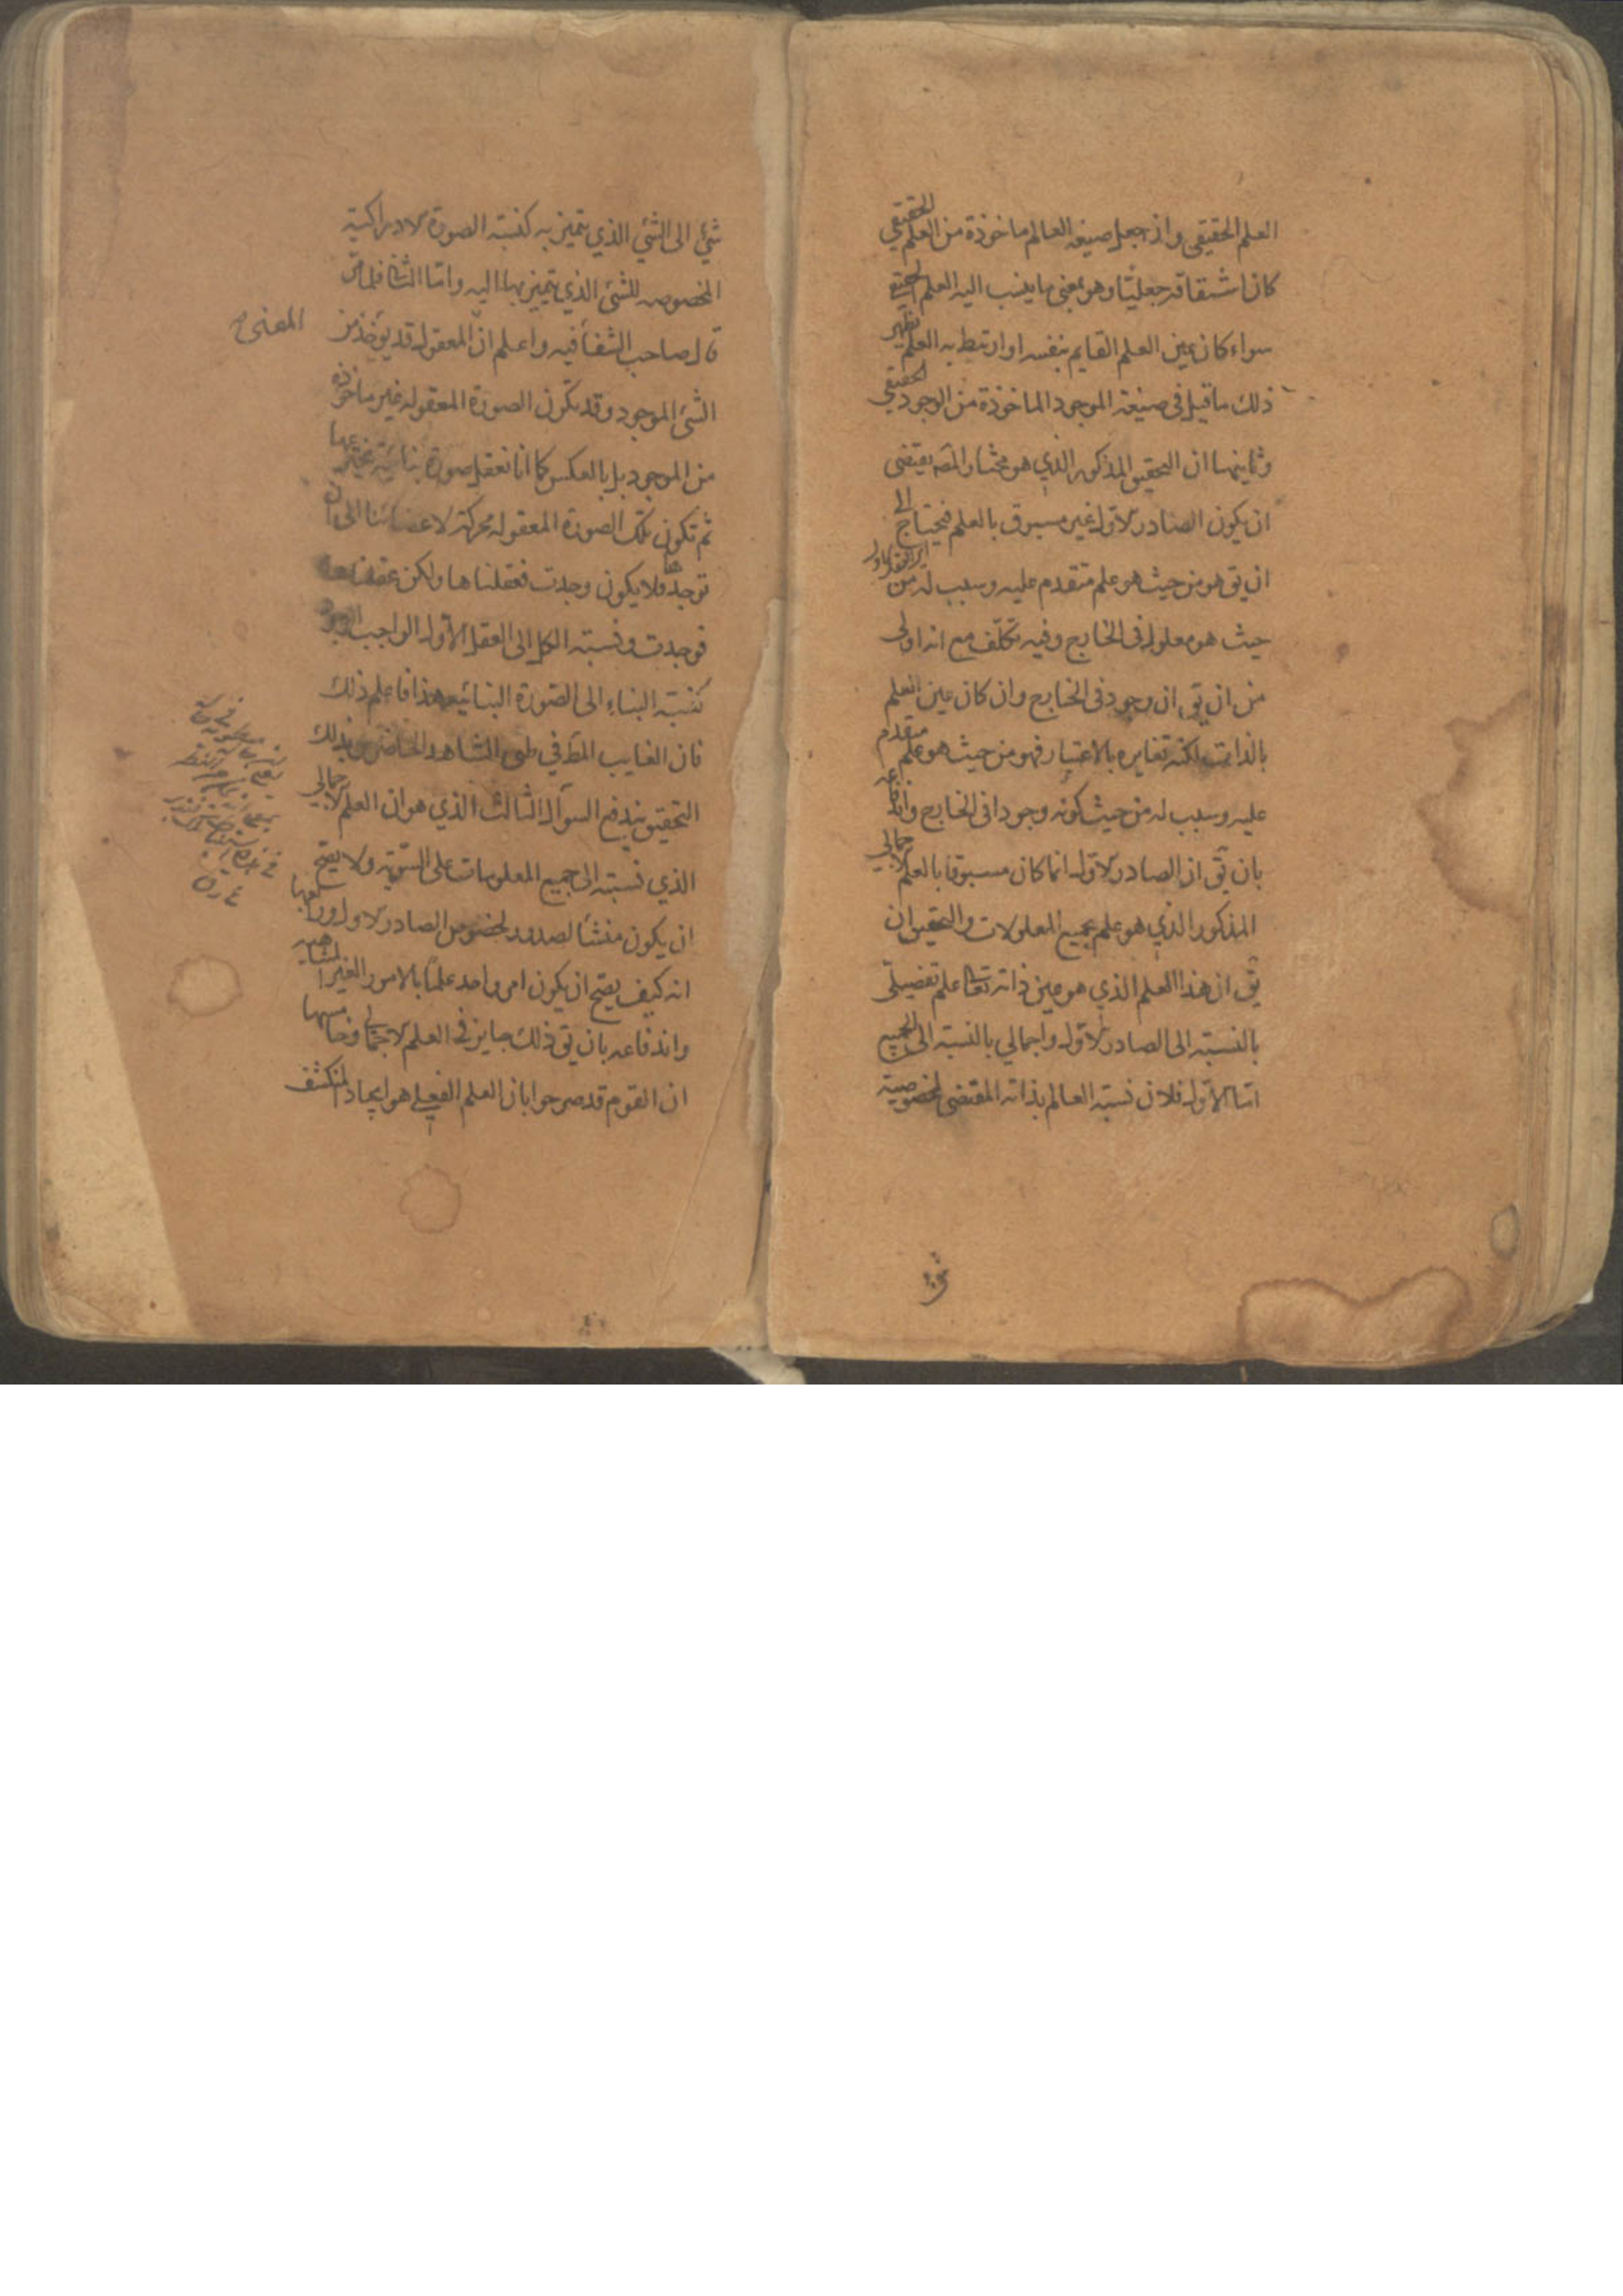 العلم الحقيقى وان جعل صيغه العالم ماخوذة من العلم الحقيقي
كان اشتقاقه جعليّا وهو بمعنى ما ينسب اليه العلم الحقيقي
سواء كان عين العلم القايم بنفسه او ارتبط به العلم نظير
ذلك ما قيل فى صيغة الموجود الماخوذة من الوجود الحقيقي
وثانيهما ان التحقيق المذكور الذي هو مختار المص يقتضى
ان يكون الصادر الاول غير مسبوق بالعلم فيحتاج الى
ان يق هو من حيث هو علم متقدم عليه وسبب له من
حيث هو معلول فى الخارج وفيه تكلّف مع انه اولى
من ان يق ان وجود فى الخارج وان كان عين العلم
بالذات لكنه تغايره بالاعتبار فهو من حيث هو علم متقدم
عليه وسبب له من حيث كونه وجودا فى الخارج
بان يق ان الصادر الاول انما كان مسبوقا بالعلم الاجمالي
المذكور الذي هو علم بجميع المعلولات والتحقيق ان
يق ان هذا العلم الذي هو عين ذاته تعا علم تفصيلى
بالنسبة الى الصادر الاول واجمالي بالنسبة الى الجميع
امّا الاول فلان نسبة العالم بذاته المقتضى لخصوصية
شئ الى الشئ الذي يتميز به كنسبة الصورة الادراكية
المخصوصه للشئ الذي يتميز بها اليه وامّا الثا
قال صاحب الشفأ فيه واعلم انّ المعقول قد يؤخذ من
المعنى
الشئ الموجود وقد تكون الصورة المعقوله غير ماخوذه
من الموجود بل بالعكس كما انا نعقل صورة بنائية نخترعها
ثم تكون تلك الصورة المعقوله محركة لاعضائنا الى ان
توجدها فلا يكون وجدت فعقلناها ولكن عقلناها
فوجدت ونسبة الكل الى العقل الاول الواجب الوجود
كنسبة البناء الى الصورة البنائيه هذا فاعلم ذلك
فان الغايب المط في طى المشاهد الحاضر وبذلك
التحقيق يندفع السوال الثالث الذي هو ان العلم الاجمالي
الذي نسبته الى جميع المعلومات على السّوية ولا يصح
ان يكون منشأ لصدور لخصوص الصادر الاول ورابعها
انه كيف يصح ان يكون امر واحد علما بالامور الغير المتناهيه
واندفاعه بان يق ذلك جايز فى العلم الاجمالي وخامسها
ان القوم قد صرحوا بان العلم الفعلى هو ايجاد المنكشف